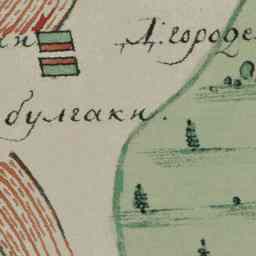 Д. городе
булгаки.